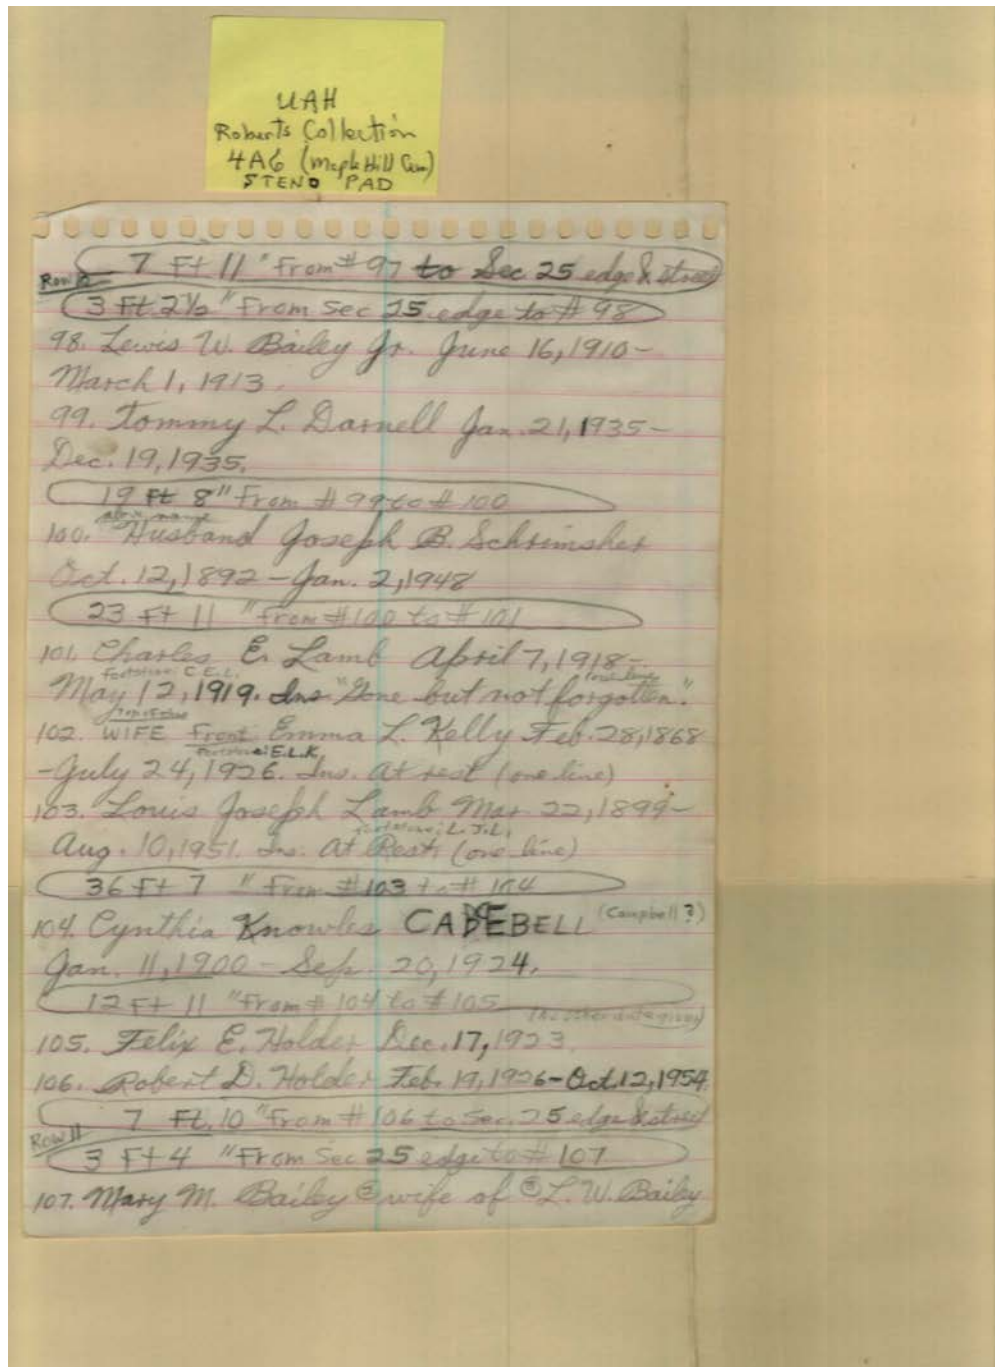 UAH
Roberts Collection
4A6 (Maple Hill Cem)
STENO PAD
7 Ft 11 " From # 97 to Sec 25 edge & street
Row
3 Ft 2½ " From Sec 25 edge to # 98
98. Lewis W. Bailey Jr. June 16, 1910-
March 1, 1913.
99. Tommy L. Darnell Jan. 21, 1935-
Dec. 19, 1935.
19 Ft 8" From # 99 to # 100
above name
100. "Husband Joseph B. Schrimsher
Oct. 12, 1892 - Jan. 2, 1948
23 Ft 11 " From # 100 to # 101
101. Charles E. Lamb April 7, 1918-
Footstone: C.E.L. one line
May 12, 1919. Ins "Gone but not forgotten."
Top of
102. WIFE Front Emma L. Kelly Feb. 28, 1868
Footstone: E.L.K.
-July 24, 1926. Ins. At rest (one line)
103. Louis Joseph Lamb Mar. 22, 1899-
Footstone: L.J.L.
Aug. 10, 1951. Ins. At Rest (one line)
36 Ft 7 " From # 103 to # 104
104. Cynthia Knowles CADEBELL (Campbell?)
Jan. 11, 1900 - Sep. 20, 1924.
12 Ft 11 " From # 104 to # 105
(No other date given)
105. Felix E. Holder Dec. 17, 1923.
106. Robert D. Holder Feb. 19, 1926-Oct. 12, 1954.
7 Ft. 10 " From # 106 to Sec. 25 edge & street
Row 11
3 Ft 4 " From Sec 25 edge to # 107
107. Mary M. Bailey ② wife of ③ L. W. Bailey